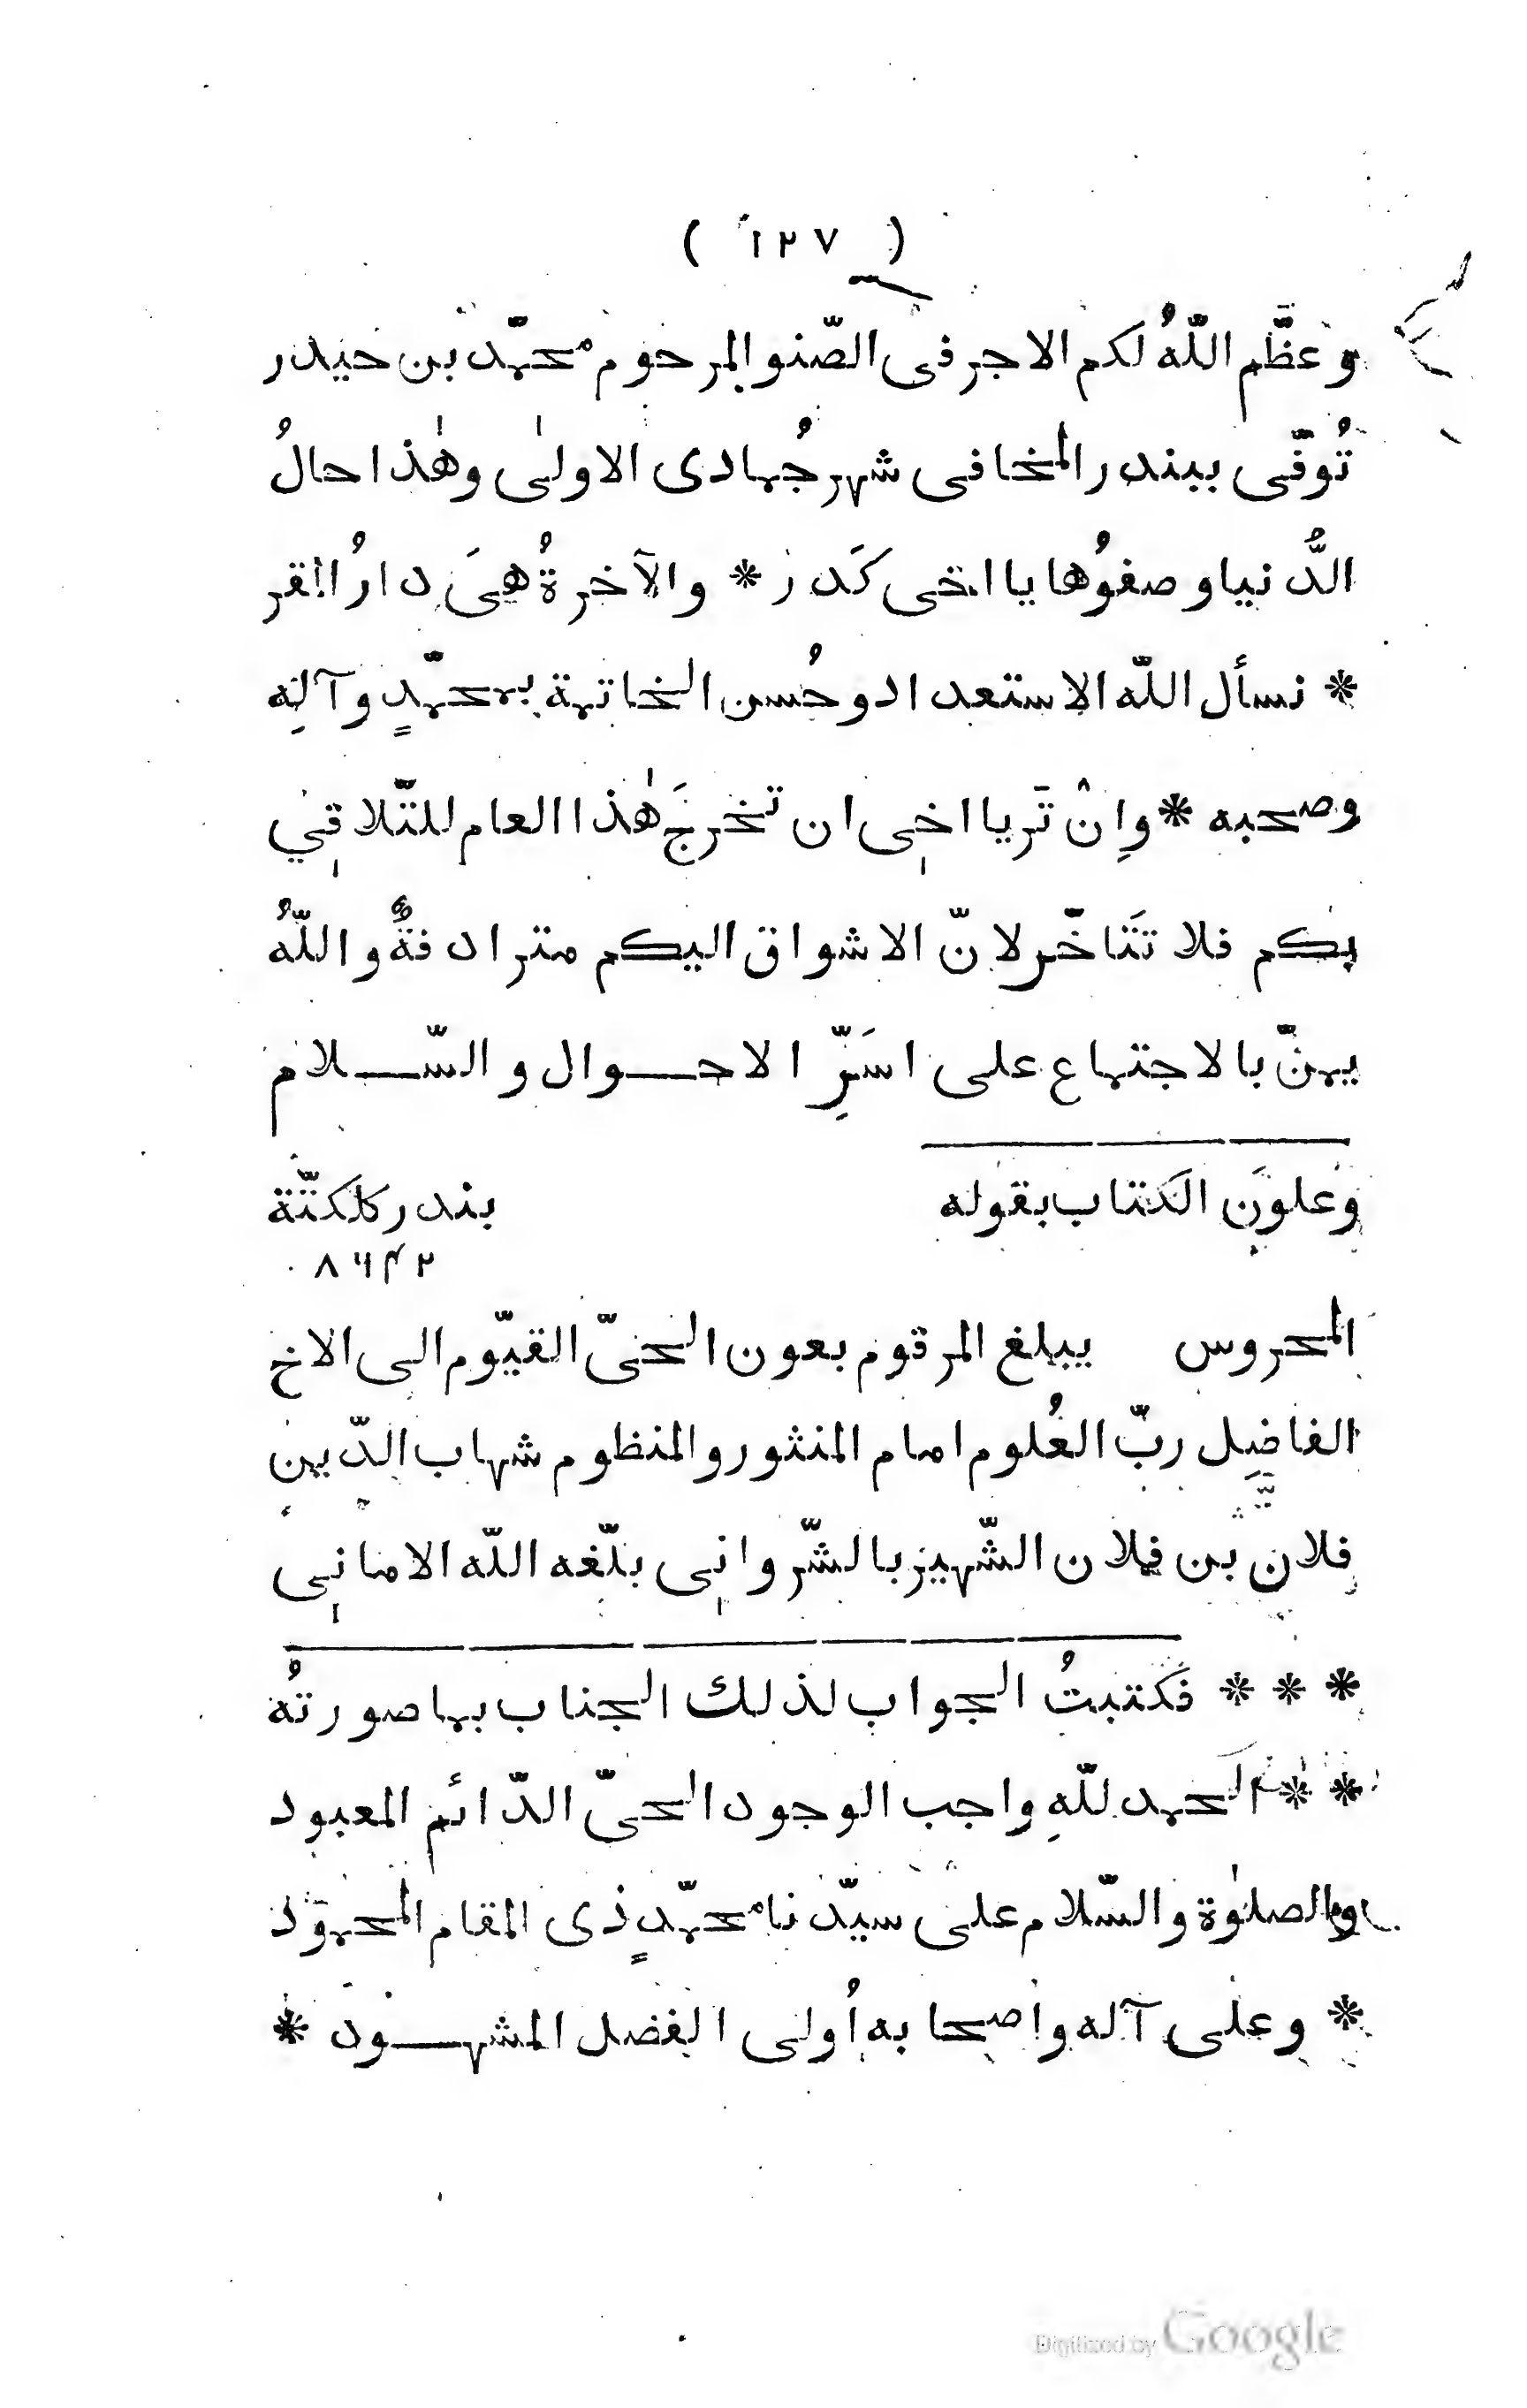 ( ١٢٧ )
وعظَّم اللّهُ لكم الاجر فى الصّنو المرحوم محمّد بن حيدر
تُوفّى ببندر المخا فى شهر جُمادى الاولٰى وهٰذا حالُ
الدُّنيا وصفوُها يا اخى كَدر * والآخرةُ هىَ دارُ القر
* نسأل اللّه الاستعداد وحُسن الخاتمة بمحمّدٍ وآلِه
وصحبه * وانْ تَر يا اخى ان تخرجَ هٰذا العام للتّلاقي
بكم فلا تتَاخّر لانّ الاشواق اليكم مترادفةٌ واللّهُ
يمنّ بالاجتماع على اسَرِّ الاحوال والسّلام
وعلونَ الكتاب بقوله بندر كلكتّة
٨٦٤٢
المحروس يبلغ المرقوم بعون الحىّ القيّوم الى الاخ
الفاضِل ربّ العُلوم امام المنثور والمنظوم شهاب الدّين
فلان بن فلان الشّهير بالشّروانى بلّغه اللّه الامانى
* * * فكتبتُ الجواب لذلك الجناب بما صورتهُ
* * الحمد للّهِ واجب الوجود الحىّ الدّائم المعبود
والصلوٰة والسّلام على سيّدنا محمّدٍ ذى المقام المحمود
* وعلى آله واصحابه اُولى الفضل المشهود *
Digitized by Google